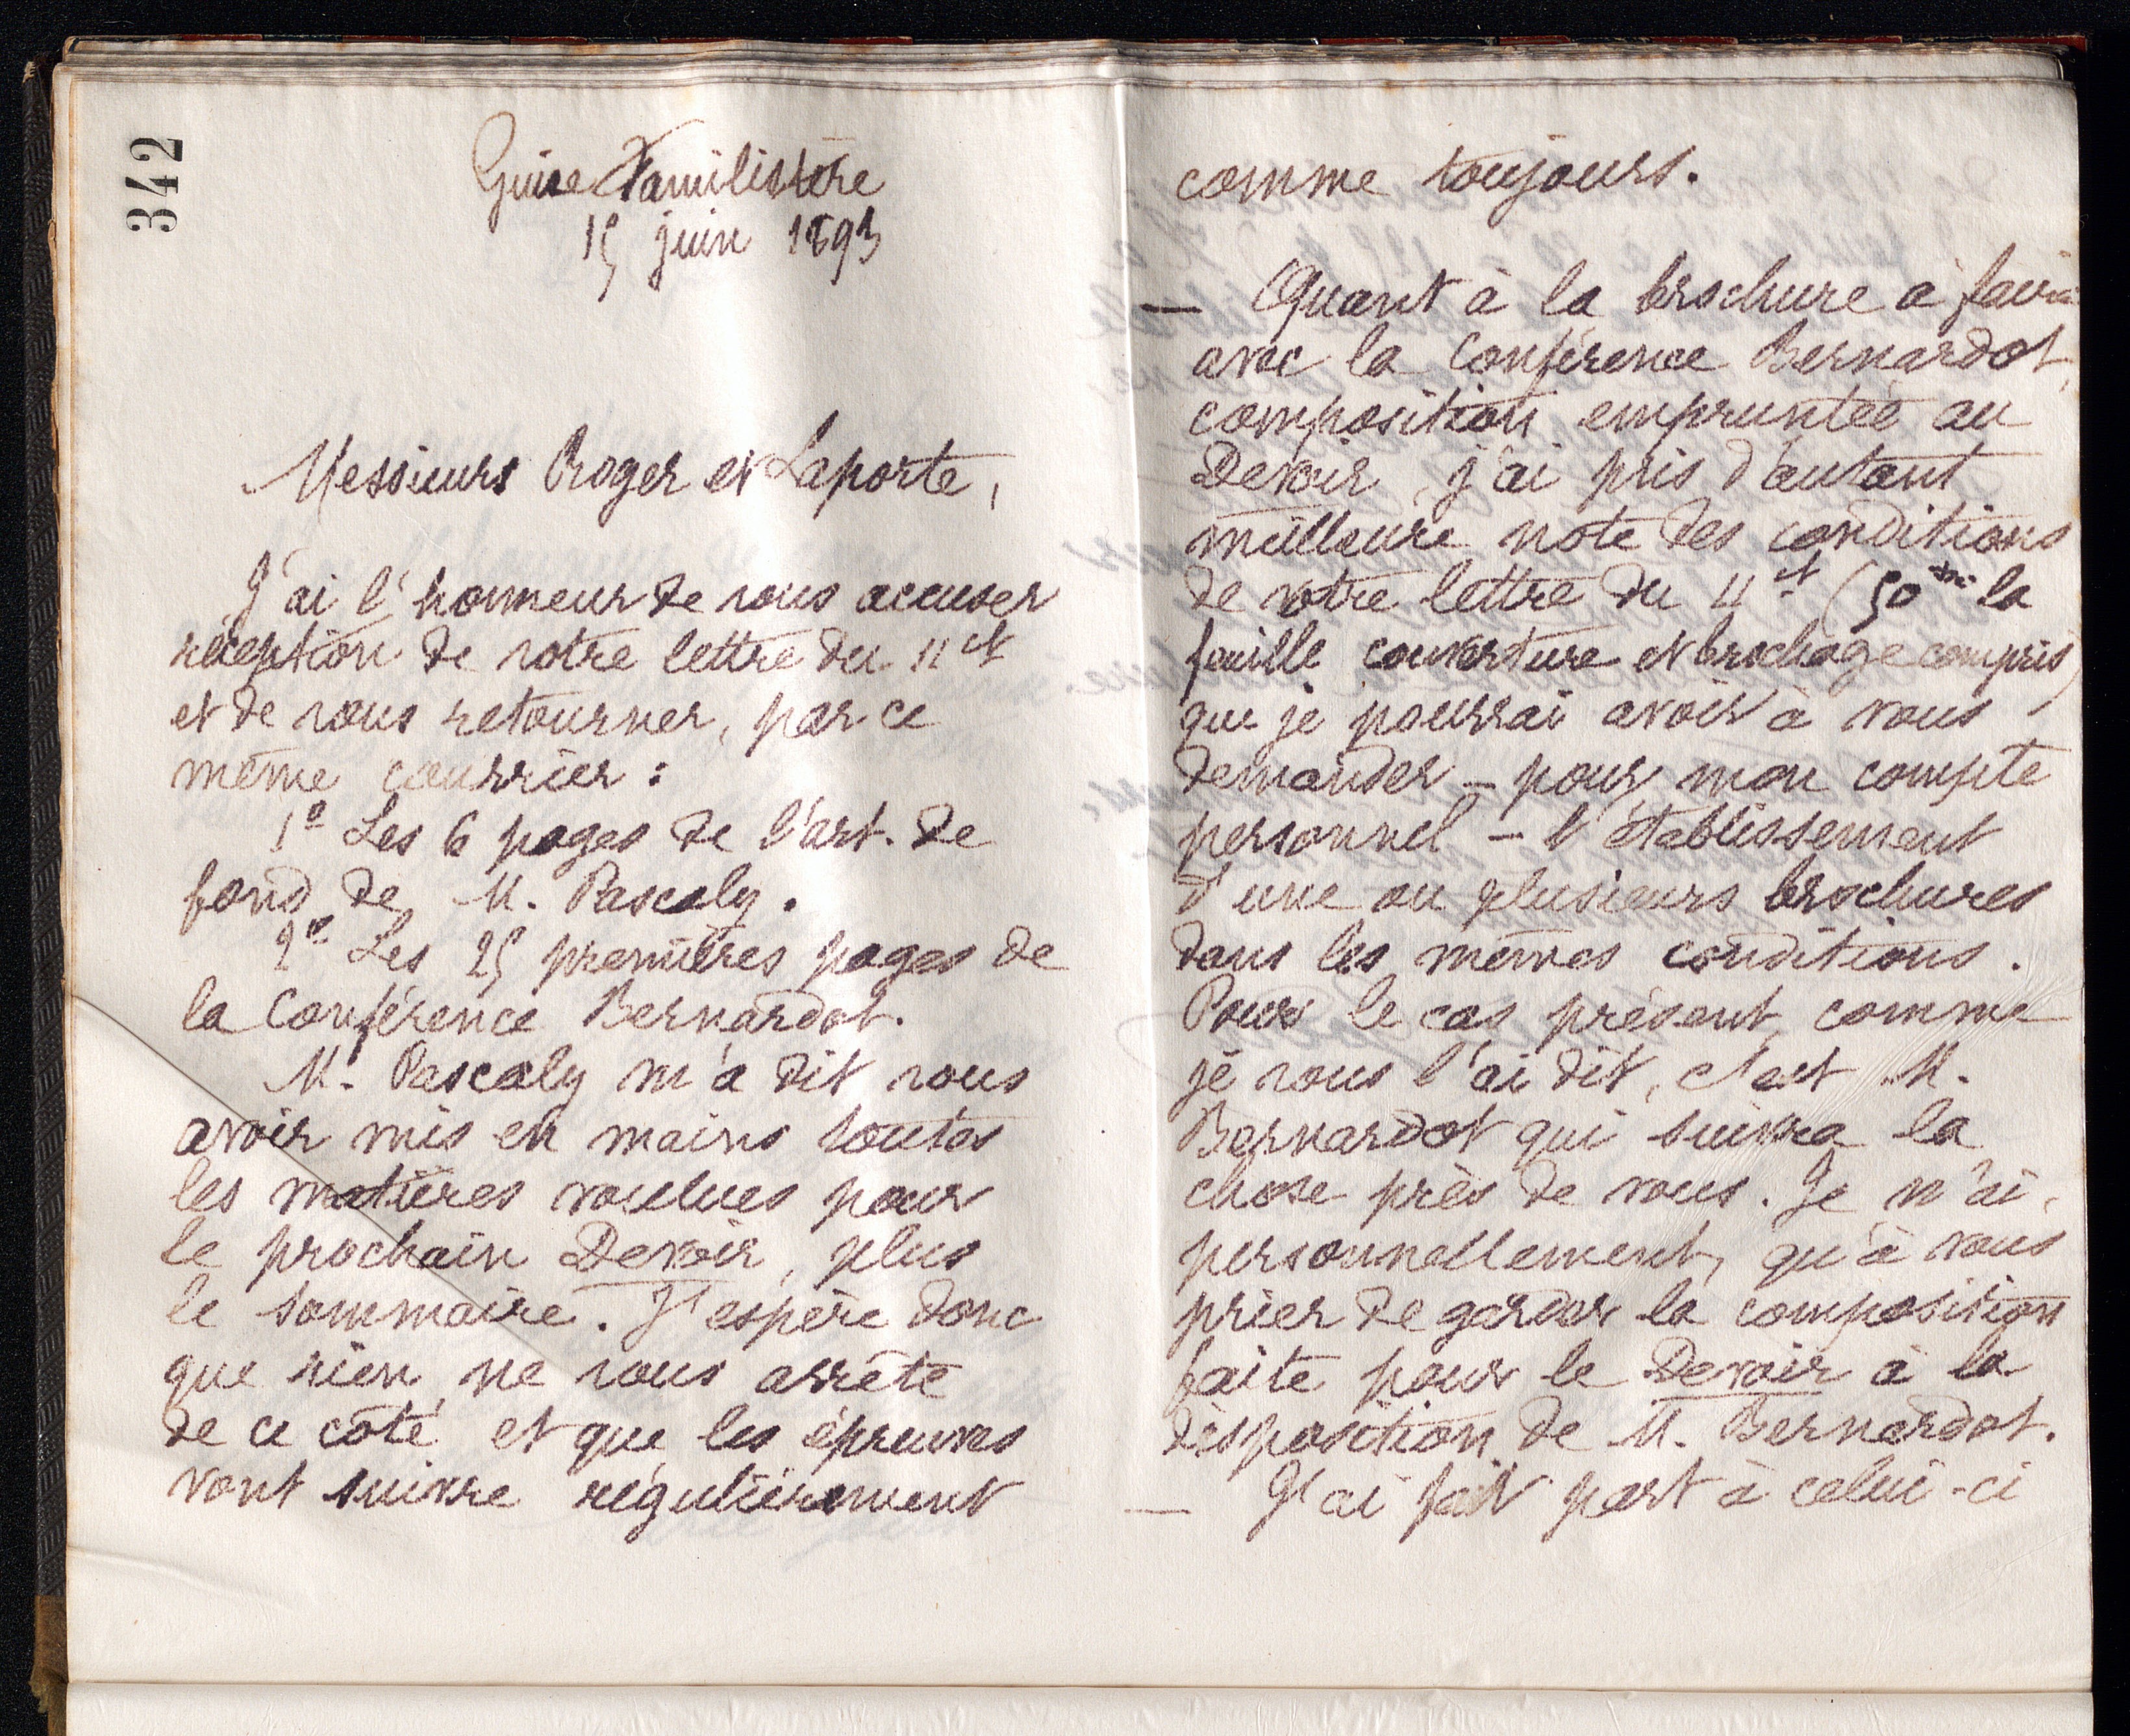 342
Guise Familistère
15 juin 1893
Messieurs Roger et Laporte,
J'ai l'honneur de vous accuser
réception de votre lettre du 11 ct
et de vous retourner, par ce
même courrier :
1º Les 6 pages de l'art. de
fond de M. Pascaly.
2º Les 25 premières pages de
la Conférence Bernardot.
M. Pascaly m'a dit vous
avoir mis en mains toutes
les matières voulues pour
le prochain Devoir, plus
le sommaire. J'espère donc
que rien ne vous arrête
de ce côté et que les épreuves
vont suivre régulièrement
comme toujours.
— Quant à la brochure à faire
avec la Conférence Bernardot,
composition empruntée au
Devoir, j'ai pris d'autant
meilleure note des conditions
de votre lettre du 11 ct (50 la
feuille couverture et brochage compris)
que je pourrai avoir à vous
demander – pour mon compte
personnel – l'établissement
d'une ou plusieurs brochures
dans les mêmes conditions.
Pour le cas présent, comme
je vous l'ai dit, c'est M.
Bernardot qui suivra la
chose près de vous. Je n'ai,
personnellement, qu'à vous
prier de garder la composition
faite pour le Devoir à la
disposition de M. Bernardot.
— J'ai fait part à celui-ci